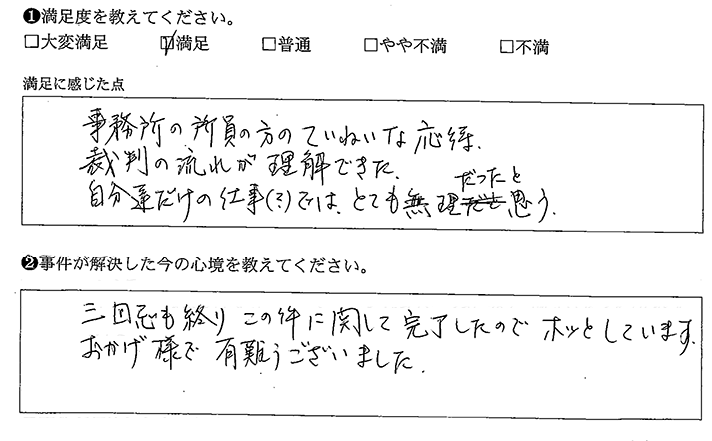 ❶満足度を教えてください。
□大変満足 ☑満足 □普通 □やや不満 □不満
満足に感じた点
事務所の所員の方のていねいな応待.
裁判の流れが理解できた.
自分達だけの仕事(?)では、とても無理だったと思う.
❷事件が解決した今の心境を教えてください。
三回忌も終り この件に関して完了したので ホッとしています.
おかげ様で 有難うございました.